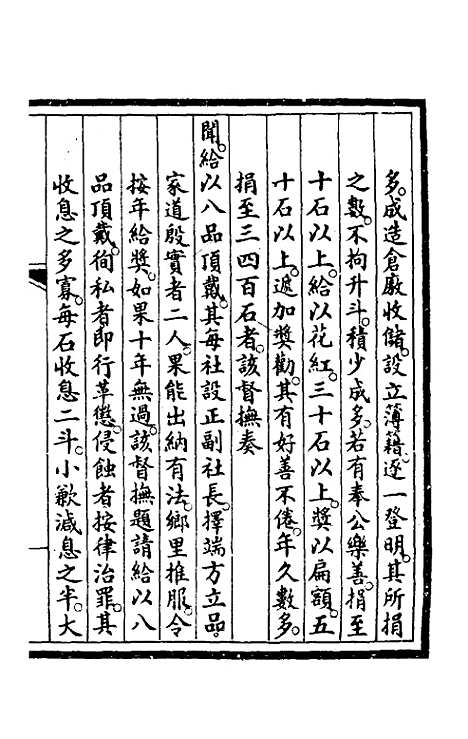 多。成造倉廒收儲。設立薄籍。逐一登明。其所捐
之數。不拘升斗。積少成多。若有奉公樂善。捐至
十石以上。給以花紅。三十石以上。奬以扁額。五
十石以上。遞加奬勸。其有好善不倦。年久數多。
捐至三四百石者。該督撫奏
聞。給以八品頂戴。其每社設正副社長。擇端方立品。
家道殷實者二人。果能出納有法。鄉里推服。令
按年給奬。如果十年無過。該督撫題請給以八
品頂戴。徇私者即行革懲。侵蝕者按律治罪。其
收息之多寡。每石收息二斗。小歉減息之半。大